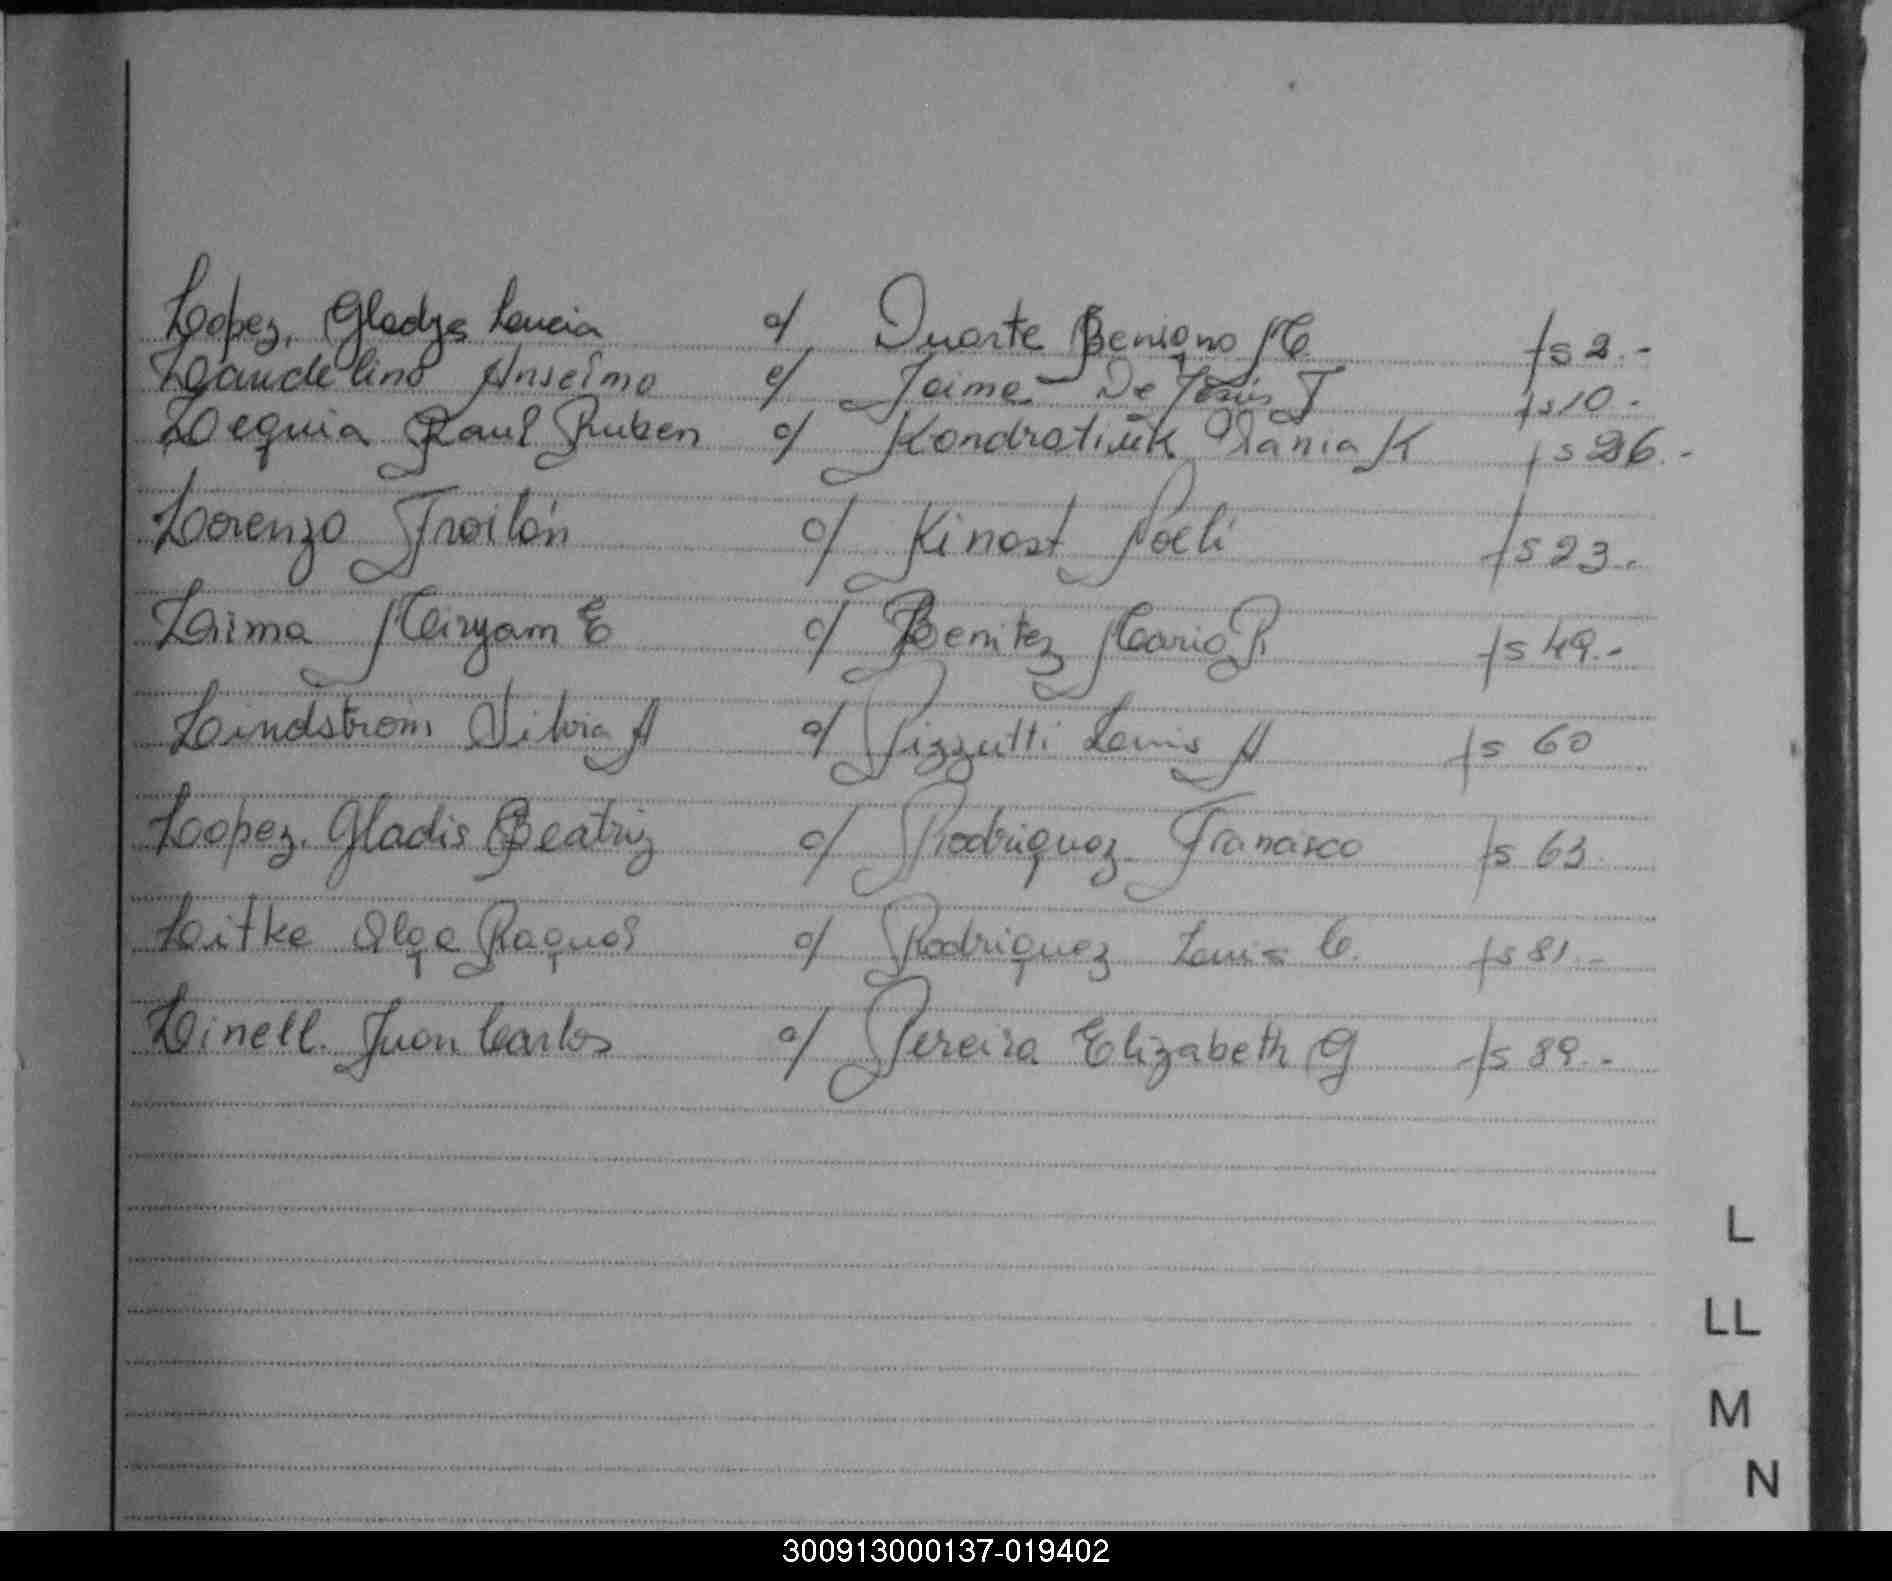 Lopez, Gladys Lucia c/ Duarte Benigno M fs 2.-
Laudelino Anselmo c/ Jaime De Jesús T fs 10.-
Lequia Raul Ruben c/ Kondratiuk Tania K fs 26.-
Lorenzo Froilán c/ Kinast Noeli fs 23.-
Laima Miryam E c/ Benitez Mario R. fs 49.-
Lindstrom Silvia A c/ Pizzutti Luis A fs 60
Lopez, Gladis Beatriz c/ Rodriguez Francisco fs 63.
Litke Olga Raquel c/ Rodriguez Luis C. fs 81.-
Linell. Juan Carlos c/ Pereira Elizabeth G fs 89.-
L
LL
M
N
300913000137-019402